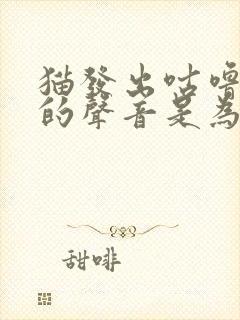 猫發出咕嚕
的聲音是為
甜啡